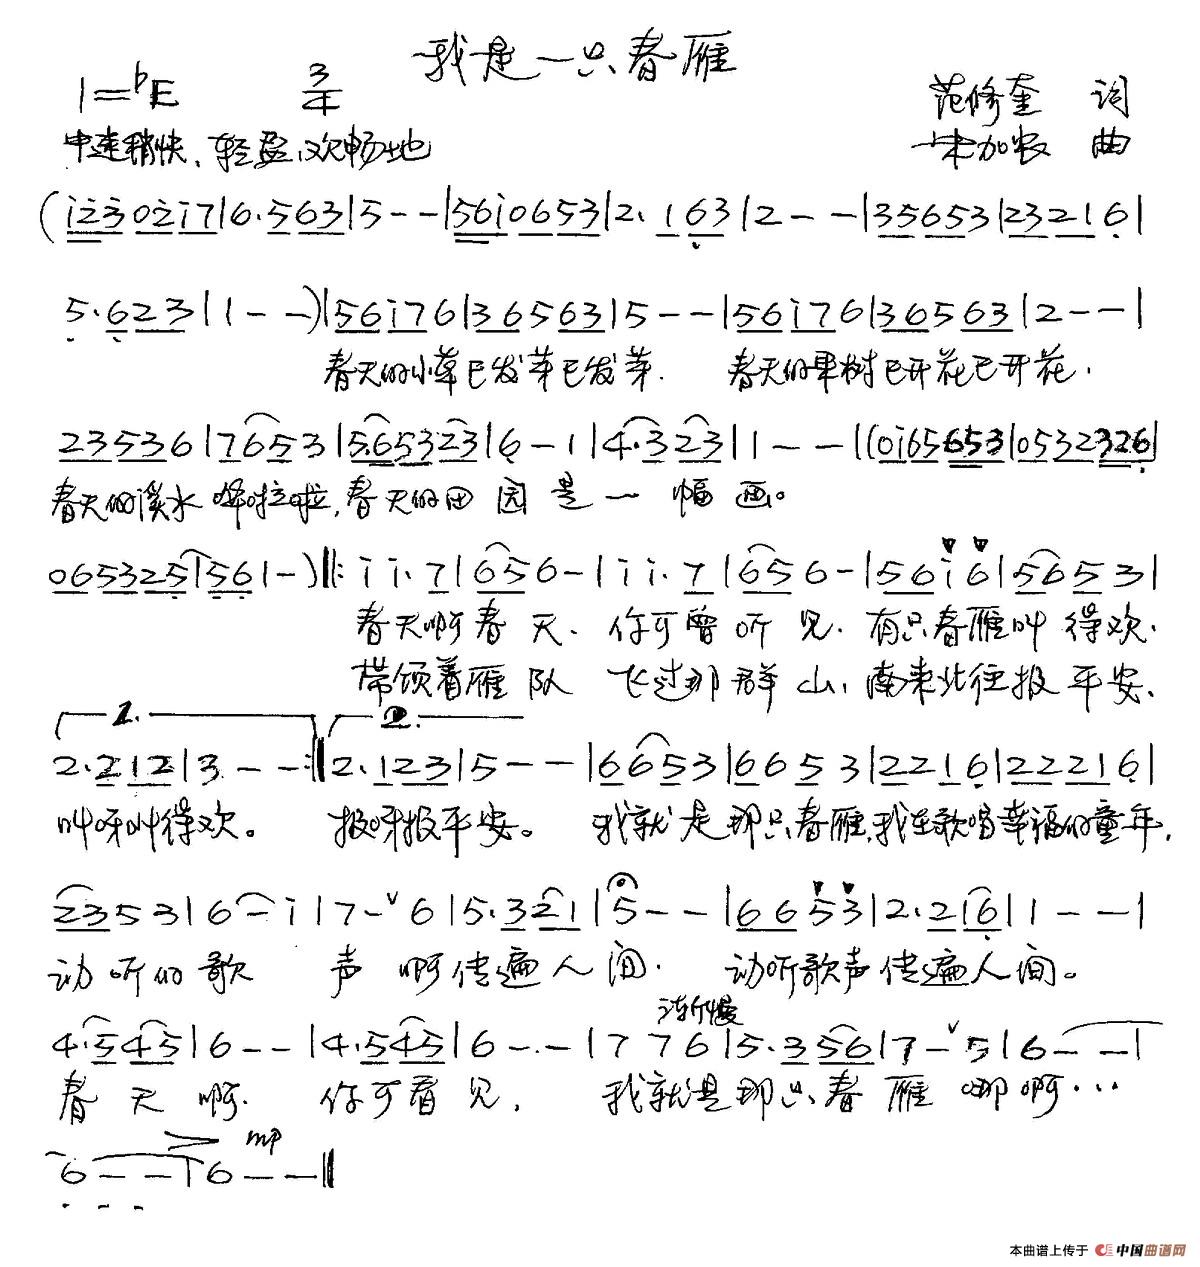 我是一只春雁
1=♭E 3/4 范修奎 词
中速稍快、轻盈、欢畅地 宋加农 曲
(i̇ 2̇ 3̇ 0 2̇ i̇ 7 | 6. 5 6 3 | 5 - - | 5 6 i̇ 0 6 5 3 | 2. 1 6 3 | 2 - - | 3 5 6 5 3 | 2 3 2 1 6 |
5. 6 2 3 | 1 - -) | 5 6 i̇ 7 6 | 3 6 5 6 3 | 5 - - | 5 6 i̇ 7 6 | 3 6 5 6 3 | 2 - - |
春天的小草已发芽已发芽. 春天的果树已开花已开花.
2 3 5 3 6 | 7 6 5 3 | 5. 6 5 3 2 3 | 6 - 1 | 4. 3 2 3 | 1 - - | (0 i̇ 6 5 6 5 3 | 0 5 3 2 3 2 6 |
春天的溪水哗啦啦,春天的田园是一幅画。
0 6 5 3 2 5 | 5 6 1 -) ‖: i̇ i̇. 7 | 6 5 6 - | i̇ i̇. 7 | 6 5 6 - | 5 6 i̇ 6 | 5 6 5 3 |
春天啊春天. 你可曾听见. 有只春雁叫得欢.
带领着雁队 飞过那群山, 南来北往报平安、
1. 2.
2. 2 1 2 | 3 - - :‖ 2. 1 2 3 | 5 - - | 6 6 5 3 | 6 6 5 3 | 2 2 1 6 | 2 2 2 1 6 |
叫呀叫得欢。 报呀报平安。 我就是那只春雁,我在歌唱幸福的童年,
2 3 5 3 | 6 - i̇ | 7 - ∨ 6 | 5. 3 2 1 | 5 - - | 6 6 5 3 | 2. 2 1 6 | 1 - - |
动听的歌声啊传遍人间. 动听歌声传遍人间。
渐慢
4. 5 4 5 | 6 - - | 4. 5 4 5 | 6 - - | 7 7 6 | 5. 3 5 6 | 7 - ∨ 5 | 6 - - |
春天啊. 你可看见, 我就是那只春雁 哪啊···
mp
6 - - | 6 - - ‖
本曲谱上传于 中国曲谱网